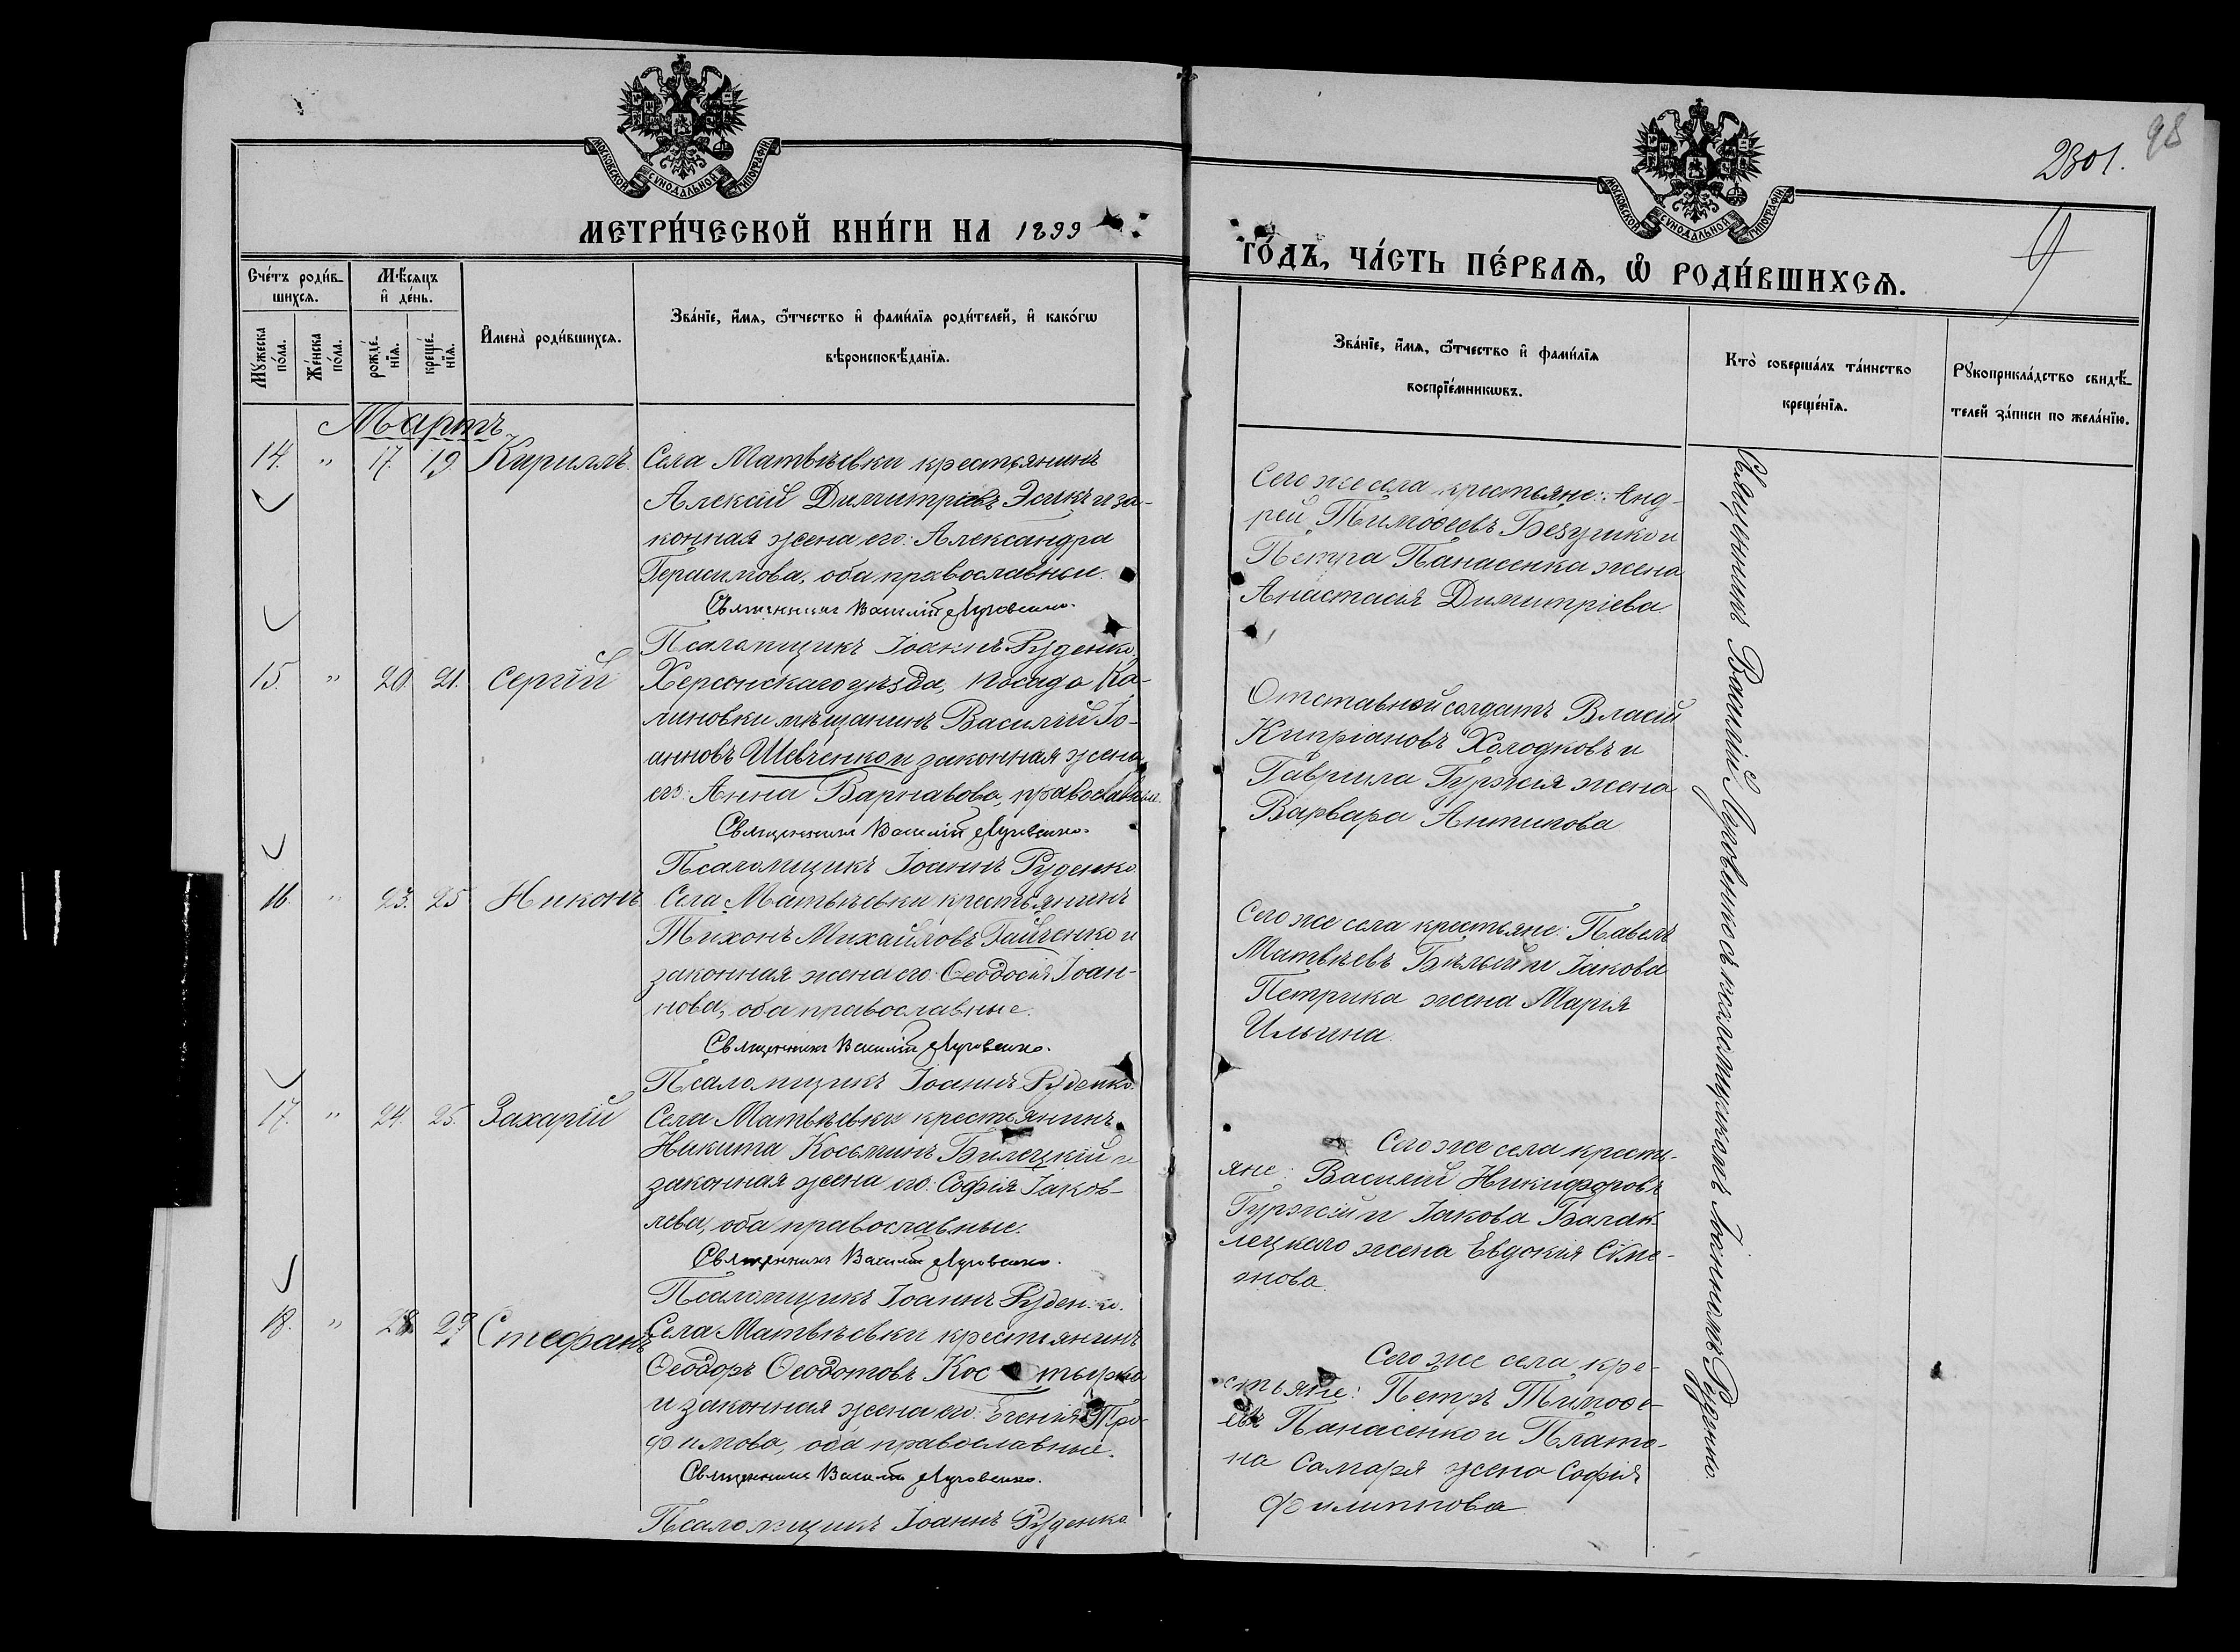 98
2301.
9
МОСКОВСКОЙ СѴНОДАЛЬНОЙ ТИПОГРАФІИ
МОСКОВСКОЙ СѴНОДАЛЬНОЙ ТИПОГРАФІИ
МЕТРИ́ЧЕСКОЙ КНИ́ГИ НА 1899
ГО́ДЪ, ЧА́СТЬ ПЕ́РВАѦ, Ѽ РОДИ́ВШИХСѦ.
Сче́тъ роди́в-
шихсѧ.
Мѣ́сѧцъ
и҆ де́нь.
Мꙋ́жеска
по́ла.
Же́нска
по́ла.
рожде́-
нїѧ.
креще́-
нїѧ.
И҆мена̀ роди́вшихсѧ.
Зва́нїе, и҆́мѧ, ѻ҆́тчество и҆ фами́лїѧ роди́телей, и҆ како́гѡ
вѣроисповѣ́данїѧ.
Зва́нїе, и҆́мѧ, ѻ҆́тчество и҆ фами́лїѧ
воспрїе́мникѡвъ.
Кто̀ соверша́лъ та́инство
креще́нїѧ.
Рꙋкоприкла́дство свидѣ́-
телей за́писи по жела́нїю.
Мартъ
14. " 17. 19. Кириллъ.
Села Матвѣевки крестьянинъ
Алексій Димитріевъ Эсикъ и за-
конная жена его: Александра
Герасимова, оба православные.
Священникъ Василій Луговенко.
Псаломщикъ Іоаннъ Руденко.
Сего же села крестьяне: Анд-
рей Тимоѳеевъ Безушко и
Петра Панасенка жена
Анастасія Димитріева.
15. " 20. 21. Сергій
Херсонскаго уѣзда, посада Ка-
линовки мѣщанинъ Василій Іо-
анновъ Шевченко и законная жена
его: Анна Варнавова, православные.
Священникъ Василій Луговенко.
Псаломщикъ Іоаннъ Руденко.
Отставной солдатъ Власій
Кипріановъ Холодковъ и
Гавриила Гуржія жена
Варвара Антипова
16. " 23. 25 Никонъ
Села Матвѣевки крестьянинъ
Тихонъ Михайловъ Гайченко и
законная жена его: Ѳеодосія Іоан-
нова, оба православные.
Священникъ Василій Луговенко.
Псаломщикъ Іоаннъ Руденко.
Сего же села крестьяне: Павелъ
Матвѣевъ Бѣлый и Іакова
Петрика жена Марія
Ильина.
17. " 24. 25. Захарій
Села Матвѣевки крестьянинъ
Никита Косьминъ Билецкій и
законная жена его: Софія Іаков-
лева, оба православные.
Священникъ Василій Луговенко.
Псаломщикъ Іоаннъ Руденко.
Сего же села кресть-
яне: Василій Никифоровъ
Гуржій и Іакова Балак-
лецкаго жена Евдокія Симо-
нова.
18. " 28. 29. Стефанъ
Села Матвѣевки крестьянинъ
Ѳеодоръ Ѳеодотовъ Кос тырко
и законная жена его: Евгенія Тро-
фимова, оба православные.
Священникъ Василій Луговенко.
Псаломщикъ Іоаннъ Руденко.
Сего же села кре-
стьяне: Петръ Тимоѳе-
евъ Панасенко и Плато-
на Самаря жена Софія
Филиппова.
Священникъ Василій Луговенко съ псаломщикомъ Іоанномъ Руденко.